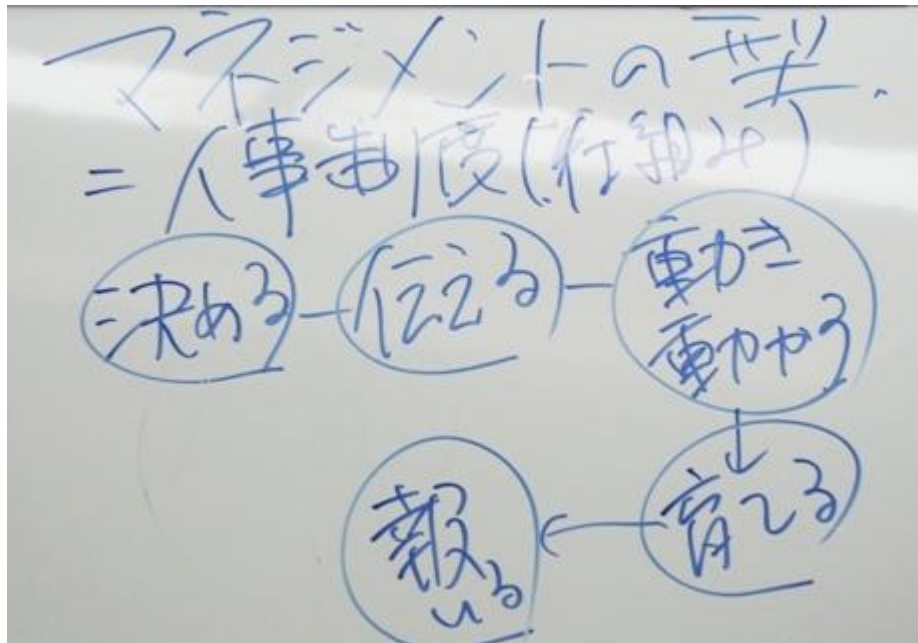 マネジメントの型.
=人事制度(仕組み)
決める
伝える
動き
動かす
育てる
報
いる